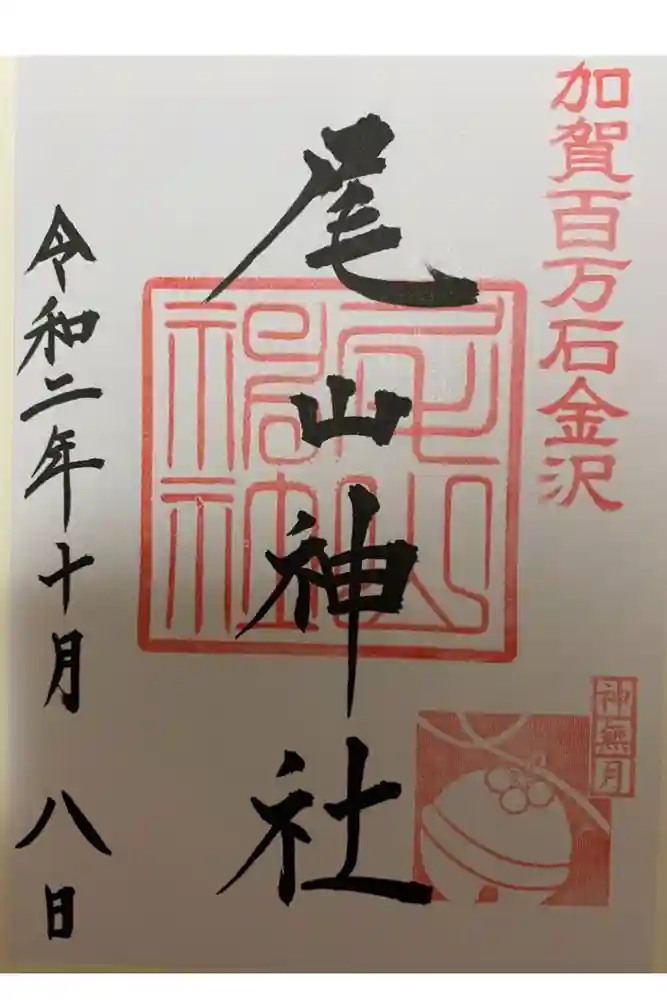 加賀百万石金沢
尾山神社
尾山神社
神無月
令和二年十月八日